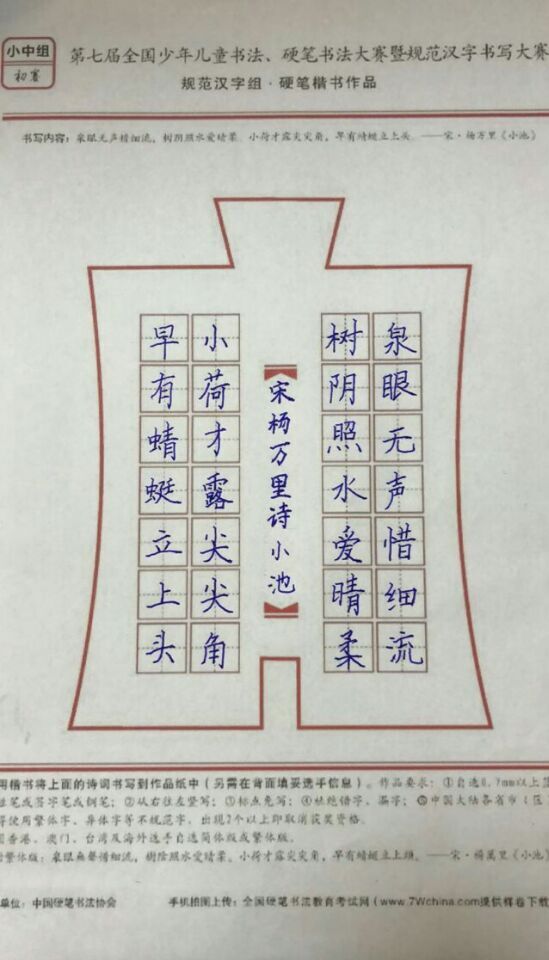 小中组
初赛
第七届全国少年儿童书法、硬笔书法大赛暨规范汉字书写大赛
规范汉字组·硬笔楷书作品
书写内容：泉眼无声惜细流，树阴照水爱晴柔。小荷才露尖尖角，早有蜻蜓立上头。——宋·杨万里《小池》
泉眼无声惜细流
树阴照水爱晴柔
宋杨万里诗小池
小荷才露尖尖角
早有蜻蜓立上头
用楷书将上面的诗词书写到作品纸中（另需在背面填妥选手信息）。作品要求：①自选0.7mm以上
性笔或签字笔或钢笔；②从右往左竖写；③标点免写；④杜绝错字、漏字；⑤中国大陆各省市（区
得使用繁体字、异体字等不规范字，出现2个以上即取消获奖资格。
国香港、澳门、台湾及海外选手自选简体版或繁体版。
繁体版：泉眼無聲惜細流，樹陰照水愛晴柔。小荷才露尖尖角，早有蜻蜓立上頭。——宋·楊萬里《小池》
单位：中国硬笔书法协会
手机拍图上传：全国硬笔书法教育考试网（www.7Wchina.com提供样卷下载